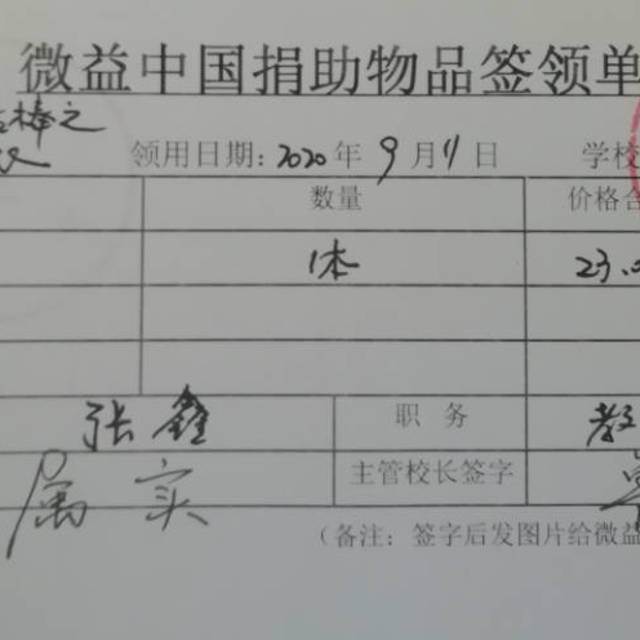 微益中国捐助物品签领单
棒之
领用日期：2020年9月11日 学校
数量 价格合
1本 23.0
张鑫 职务 教
属实 主管校长签字
（备注：签字后发图片给微益